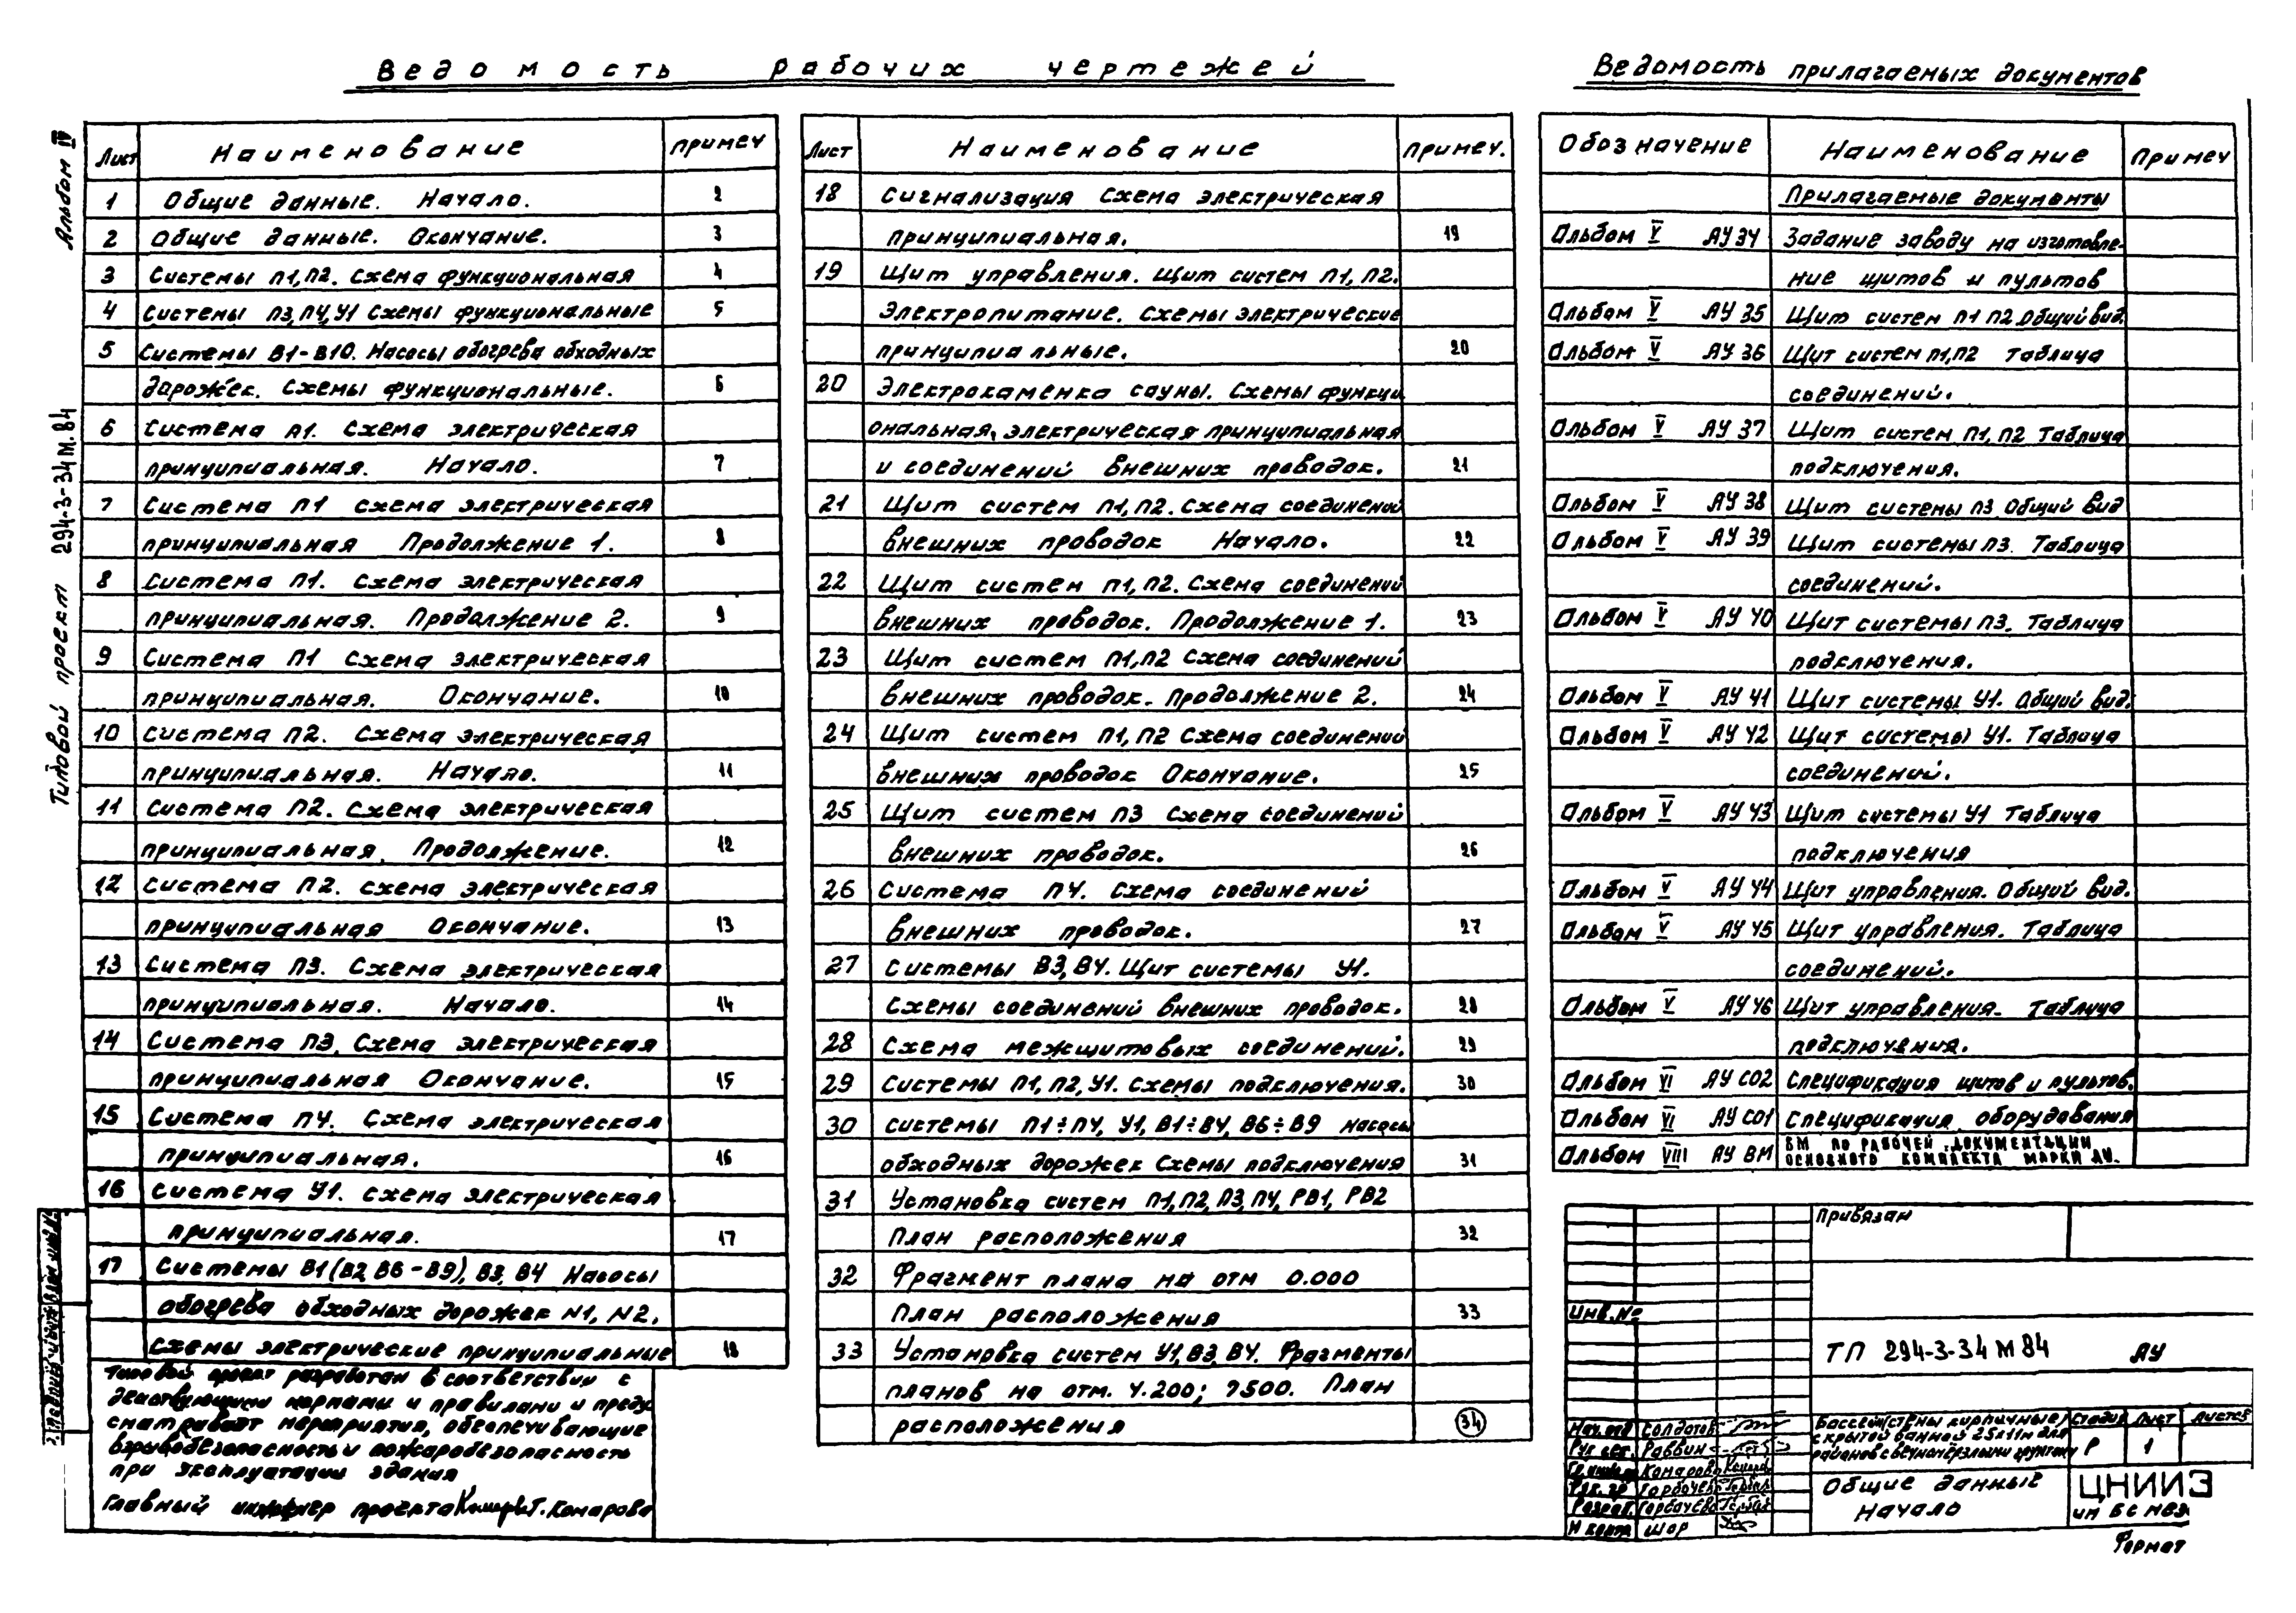 Ведомость рабочих чертежей
Лист Наименование примеч
1 Общие данные. Начало. 2
2 Общие данные. Окончание. 3
3 Системы П1,П2. Схема функциональная 4
4 Системы П3,П4,У1 Схемы функциональные 5
5 Системы В1-В10. Насосы обогрева обходных
дарожек. Схемы функциональные. 6
6 Система П1. Схема электрическая
принципиальная. Начало. 7
7 Система П1 схема электрическая
принципиальная Продолжение 1. 8
8 Система П1. Схема электрическая
принципиальная. Продолжение 2. 9
9 Система П1 Схема электрическая
принципиальная. Окончание. 10
10 Система П2. Схема электрическая
принципиальная. Начало. 11
11 Система П2. Схема электрическая
принципиальная. Продолжение. 12
12 Система П2. Схема электрическая
принципиальная Окончание. 13
13 Система П3. Схема электрическая
принципиальная. Начало. 14
14 Система П3. Схема электрическая
принципиальная Окончание. 15
15 Система П4. Схема электрическая
принципиальная. 16
16 Система У1. Схема электрическая
принципиальная. 17
17 Системы В1(В2 В6-В9), В3, В4 Насосы
обогрева обходных дорожек N1, N2.
Схемы электрические принципиальние 18
Типовой проект разработан в соответствии с
действующими нормами и правилами и преду
сматривает мероприятия, обеспечивающие
взрывобезопасность и пожаробезопасность
при эксплуатации здания
Главный инженер проекта Т. Комарова
Лист Наименование Примеч.
18 Сигнализация Схема электрическая
принципиальная. 19
19 Щит управления. Щит систем П1, П2.
Электропитание. Схемы электрические
принципиальные. 20
20 Электрокаменка сауны. Схемы функци
ональная, электрическая принципиальная
и соединений внешних проводок. 21
21 Щит систем П1,П2. Схема соединений
внешних проводок Начало. 22
22 Щит систем П1, П2. Схема соединений
внешних проводок. Продолжение 1. 23
23 Щит систем П1,П2 Схема соединений
внешних проводок. Продолжение 2. 24
24 Щит систем П1, П2 Схема соединений
внешних проводок Окончание. 25
25 Щит систем П3 Схема соединений
внешних проводок. 26
26 Система П4. Схема соединений
внешних проводок. 27
27 Системы В3, В4. Щит системы У1.
Схемы соединений внешних проводок. 28
28 Схема межщитовых соединений. 29
29 Системы П1, П2, У1. Схемы подключения. 30
30 системы П1÷П4, У1, В1÷В4, В6÷В9 насосы
обходных дорожек Схемы подключения 31
31 Установка систем П1, П2, П3, П4, РВ1, РВ2
План расположения 32
32 Фрагмент плана на отм 0.000
План расположения 33
33 Установка систем У1, В3, В4. Фрагменты
планов на отм. 4.200; 7500. План
расположения 34
Ведомость прилагаемых документов
Обозначение Наименование Примеч
Прилагаемые документы
Альбом V АУ 34 Задание заводу на изготовле-
ние щитов и пультов
Альбом V АУ 35 Щит систем П1 П2 Общий вид.
Альбом V АУ 36 Щит систем П1,П2 таблица
соединений.
Альбом V АУ 37 Щит систем П1, П2 Таблица
подключения.
Альбом V АУ 38 Щит системы П3. Общий вид
Альбом V АУ 39 Щит системы П3. Таблица
соединений.
Альбом V АУ 40 Щит системы П3. Таблица
подключения.
Альбом V АУ 41 Щит системы У1. Общий вид.
Альбом V АУ 42 Щит системы У1. Таблица
соединений.
Альбом V АУ 43 Щит системы У1 Таблица
подключения
Альбом V АУ 44 Щит управления. Общий вид.
Альбом V АУ 45 Щит управления. Таблица
соединений.
Альбом V АУ 46 Щит управления. Таблица
подключения.
Альбом VI АУ СО2 Спецификация щитов и пультов.
Альбом VI АУ СО1 Спецификация оборудования
Альбом VIII АУ ВМ ВМ по рабочей документации
основного комплекта марки АУ.
Привязан
Инв.№
ТП 294-3-34 М 84 АУ
Нач. отд Солдатов
Рук. сек. Раввин
Гл. инж. Комарова
Рук. гр Горбачева
Разраб. Горбачева
Н контр Шор
Бассейн (стены кирпичные)
с крытой ванной 25х11м для
районов с вечномёрзлыми грунтами
Стадия Лист Листов
Р 1
Общие данные
Начало
ЦНИИЭ
им Б С Мез
Формат
Альбом IV
Типовой проект 294-3-34М.84